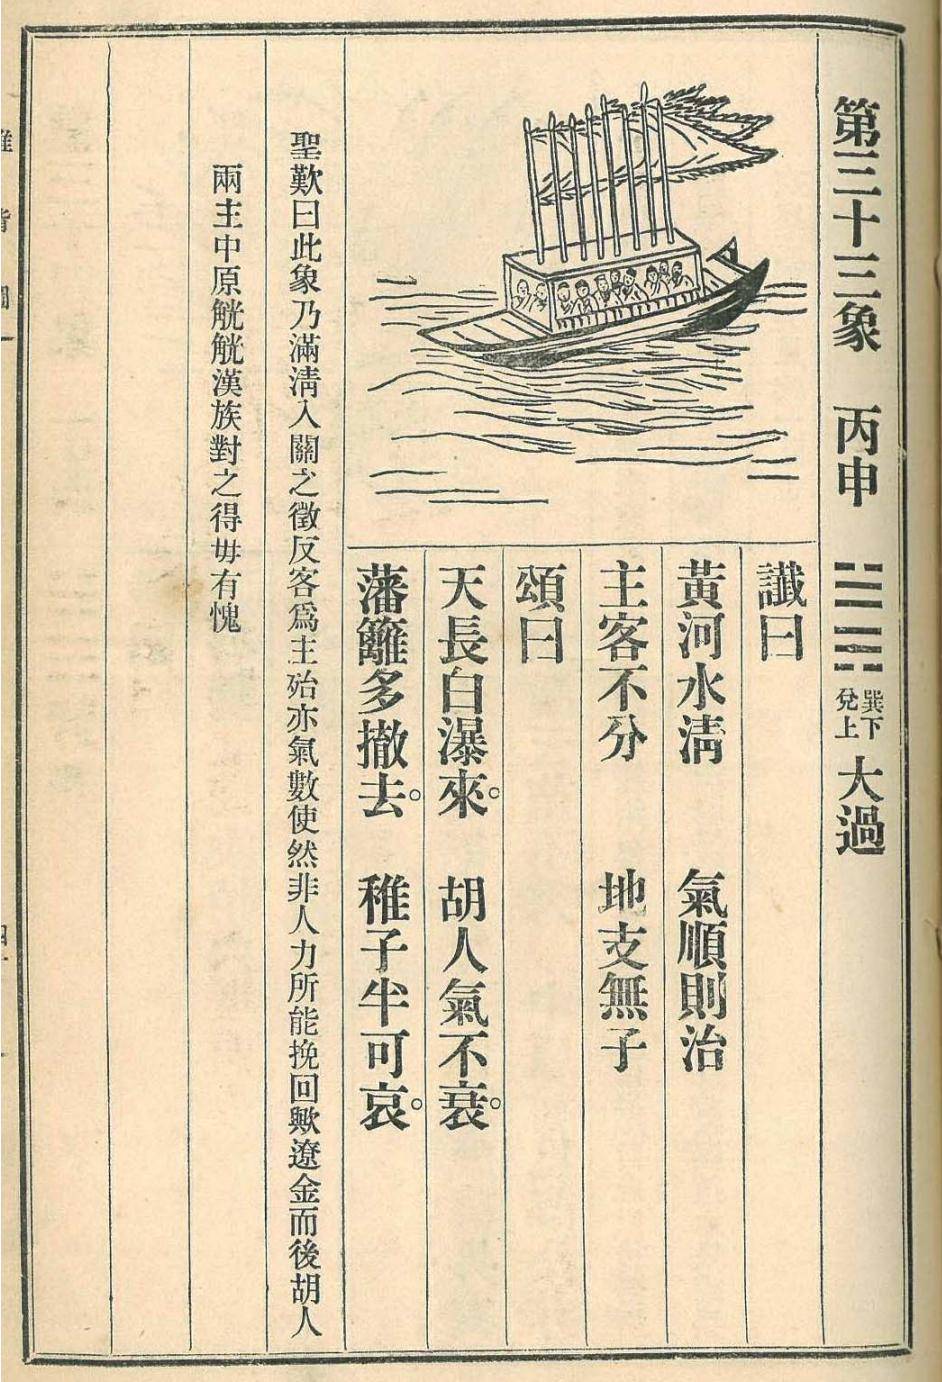 第三十三象 丙申 巽下兌上 大過
讖曰
黃河水清 氣順則治
主客不分 地支無子
頌曰
天長白瀑來。 胡人氣不衰。
藩籬多撤去。 稚子半可哀。
聖歎曰此象乃滿淸入關之徵反客爲主殆亦氣數使然非人力所能挽回歟遼金而後胡人
兩主中原觥觥漢族對之得毋有愧